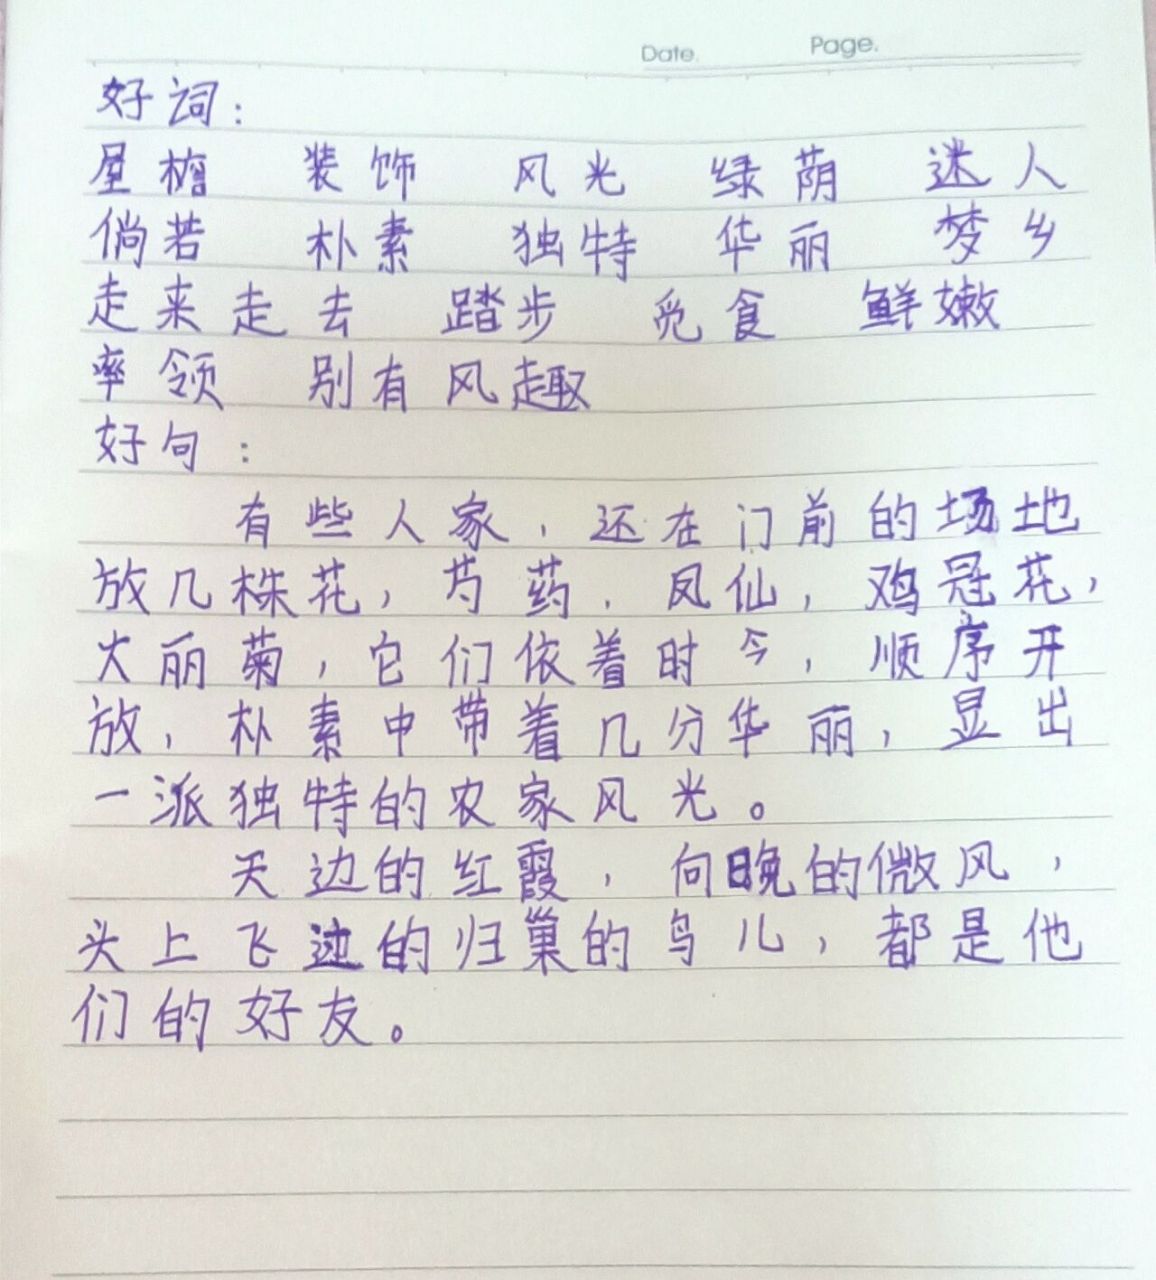 Date. Page.
好词：
屋檐 装饰 风光 绿荫 迷人
倘若 朴素 独特 华丽 梦乡
走来走去 踏步 觅食 鲜嫩
率领 别有风趣
好句：
有些人家，还在门前的场地
放几株花，芍药，凤仙，鸡冠花，
大丽菊，它们依着时今，顺序开
放，朴素中带着几分华丽，显出
一派独特的农家风光。
天边的红霞，向晚的微风，
头上飞边的归巢的鸟儿，都是他
们的好友。